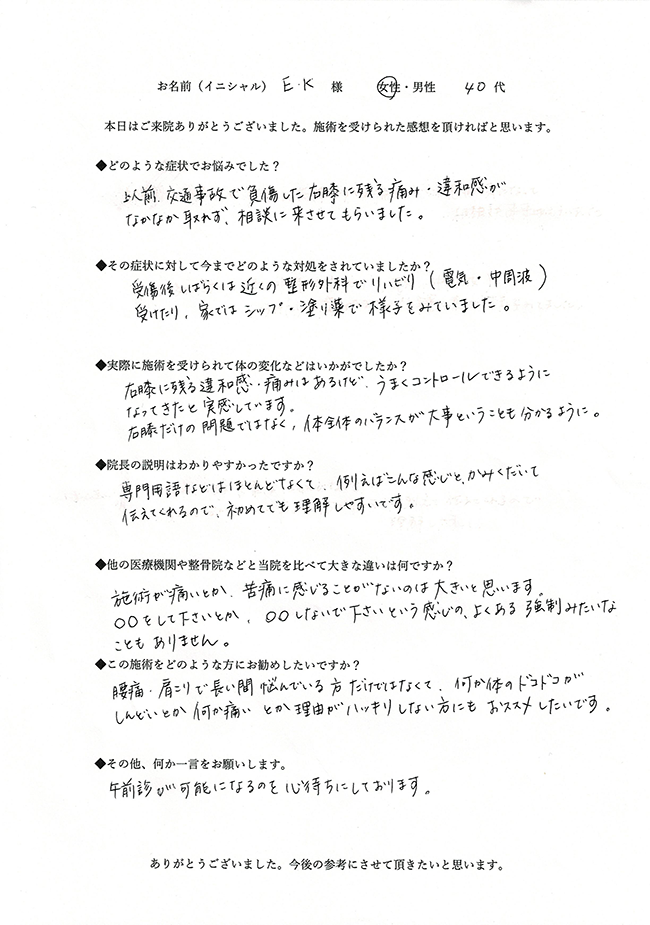 お名前（イニシャル） E・K 様 女性・男性 40代
本日はご来院ありがとうございました。施術を受けられた感想を頂ければと思います。
◆どのような症状でお悩みでした？
以前、交通事故で負傷した右膝に残る痛み・違和感が
なかなか取れず、相談に来させてもらいました。
◆その症状に対して今までどのような対処をされていましたか？
受傷後しばらくは近くの整形外科でリハビリ（電気・中周波）
受けたり、家ではシップ・塗り薬で様子をみていました。
◆実際に施術を受けられて体の変化などはいかがでしたか？
右膝に残る違和感・痛みはあるけど、うまくコントロールできるように
なってきたと実感しています。
右膝だけの問題ではなく、体全体のバランスが大事ということも分かるように。
◆院長の説明はわかりやすかったですか？
専門用語などはほとんどなくて、例えばこんな感じと、かみくだいて
伝えてくれるので、初めてでも理解しやすいです。
◆他の医療機関や整骨院などと当院を比べて大きな違いは何ですか？
施術が痛いとか、苦痛に感じることがないのは大きいと思います。
○○をして下さいとか、○○しないで下さいという感じの、よくある強制みたいな
こともありません。
◆この施術をどのような方にお勧めしたいですか？
腰痛・肩こりで長い間悩んでいる方だけではなくて、何か体のドコドコが
しんどいとか何か痛いとか理由がハッキリしない方にもおススメしたいです。
◆その他、何か一言をお願いします。
午前診が可能になるのを心待ちにしております。
ありがとうございました。今後の参考にさせて頂きたいと思います。